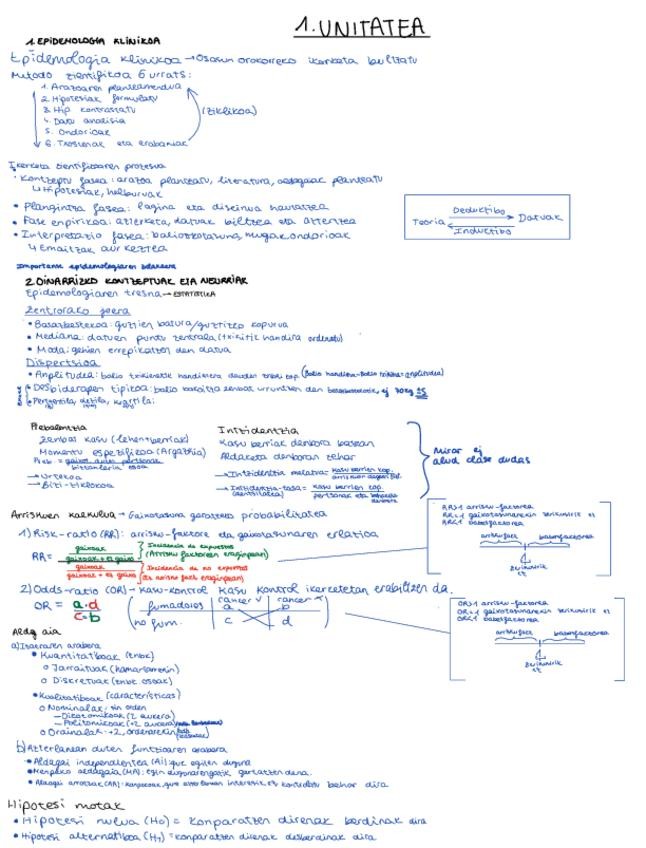 1. UNITATEA
1. EPIDEMOLOGIA KLINIKOA
Epidemologia klinikoa → Osasun orokorreko ikerketa bultzatu
Metodo zientifikoa 6 urrats:
1. Arazoaren planteamendua
2. Hipotesiak formulatu
3. Hip kontrastatu
4. Datu analisia
5. Ondorioak
6. Txostenak eta erabakiak
(Ziklikoa)
Ikerketa zientifikoaren prozesua
• Kontzeptu fasea: arazoa planteatu, literatura, aldagaiak planteatu
↳ Hipotesiak, helburuak
• Plangintza fasea: lagina eta diseinua hautatzea
• Fase enpirikoa: azterketa, datuak biltzea eta aztertzea
• Interpretazio fasea: baliozkotasuna, mugak, ondorioak
↳ Emaitzak aurkeztea
Teoria Deduktibo Datuak
Induktibo
Importante epidemologiaren
2. OINARRIZKO KONTZEPTUAK ETA NEURRIAK
Epidemologiaren tresna → ESTATISTIKA
Zentrorako joera
• Batazbestekoa: guztien batura/guztizko kopurua
• Mediana: datuen puntu zentrala (txikitik handira ordenatu)
• Moda: gehien errepikatzen den datua
Dispertsioa
• Anplitudea: balio txikienetik handienera dauden
• Desbiderapen tipikoa: balio bakoitza zenbat urruntzen den batazbestekotik, ej 70kg ±5
• Pertzentila, dezila, kuartila:
Prebalentzia
Zenbat kasu (lehen+berriak)
Momentu espezifikoa (Argazkia)
Preb = gaixoa duten pertsonak
biztanleria osoa
→ Urtekoa
→ Bizi-ziklokoa
Intzidentzia
Kasu berriak denbora batean
Aldaketa denboran zehar
→ Intzidentzia metatua = kasu berrien kop.
→ Intzidentzia-tasa = kasu berrien kop.
(dentsitatea)
Mirar ej
alud clase dudas
Arriskuen kalkulua → Gaixotasuna garatzeko probabilitatea
1) Risk-ratio (RR): arrisku-faktore eta gaixotasunaren erlazioa
RR =
gaixoak
gaixoak + ez gaixo
Incidencia de expuestos
(Arrisku faktorean eraginpean)
gaixoak
gaixoak + ez gaixo
Incidencia de no expuestos
(Ez arrisku fack eraginpean)
RR>1 arrisku-faktorea
RR=1 gaixotasunarekin zerikusirik ez
RR<1 babesfaktorea
arriskufack babesfaktorea
Zerikusirik
ez
2) Odds-ratio (OR) → Kasu-kontrol kasu kontrol ikerketetan erabiltzen da.
OR = a·d
c·b
cancer ✓ cancer ✗
fumadores a b
no fum. c d
OR>1 arrisku-faktorea
OR=1 gaixotasunarekin zerikusirik ez
OR<1 babesfaktorea
arriskufack babesfaktorea
Zerikusirik
ez
Aldagaia
a) Izaeraren arabera
• Kuantitatiboak (znbk)
○ Jarraituak (hamartarrekin)
○ Diskretuak (znbk osoak)
• Kualitatiboak (características)
○ Nominalak: sin orden
— Dikotomikoak (2 aukera)
— Politomikoak (+2 aukera)
○ Ordinalak: +2, ordenarekin
b) Azterlanean duten funtzioaren arabera
• Aldagai independentea (AI): que egiten duguna
• Menpeko aldagaia (MA): egin dugunarengatik gertatzen dena.
• Aldagai arrotzak (AA): kanpokoak, que
Hipotesi motak
• Hipotesi nulua (H₀) = konparatzen direnak berdinak dira
• Hipotesi alternatiboa (H₁) = konparatzen direnak desberdinak dira